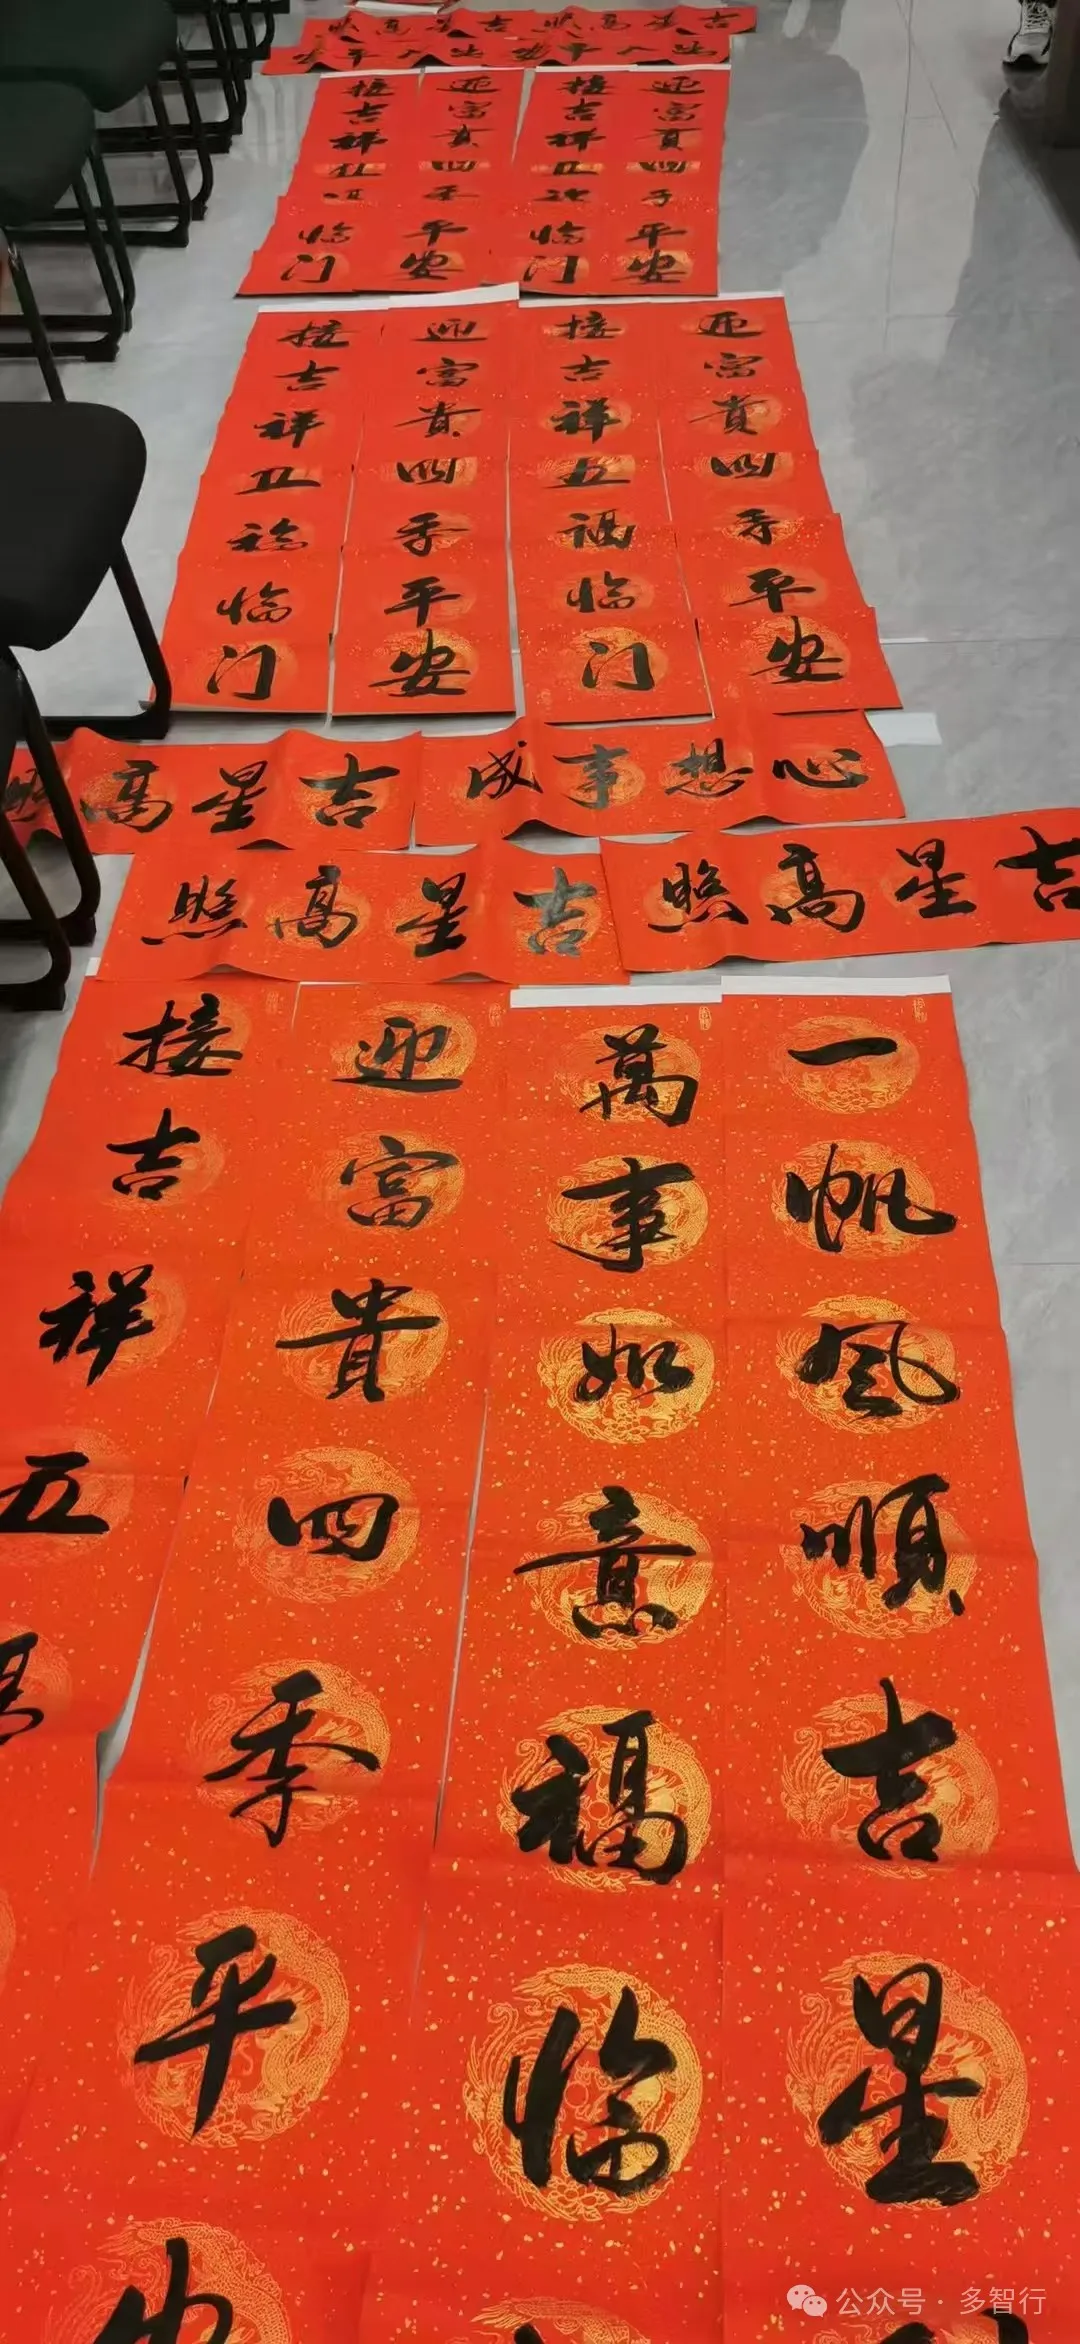 吉星高照
吉星高照
出入平安
出入平安
迎富貴四季平安
接吉祥五福临门
迎富貴四季平安
接吉祥五福临门
迎富貴四季平安
接吉祥五福临门
迎富貴四季平安
接吉祥五福临门
心想事成
吉星高照
吉星高照
吉星高照
一帆风順吉星
萬事如意福临
迎富貴四季平安
接吉祥五
公众号 · 多智行